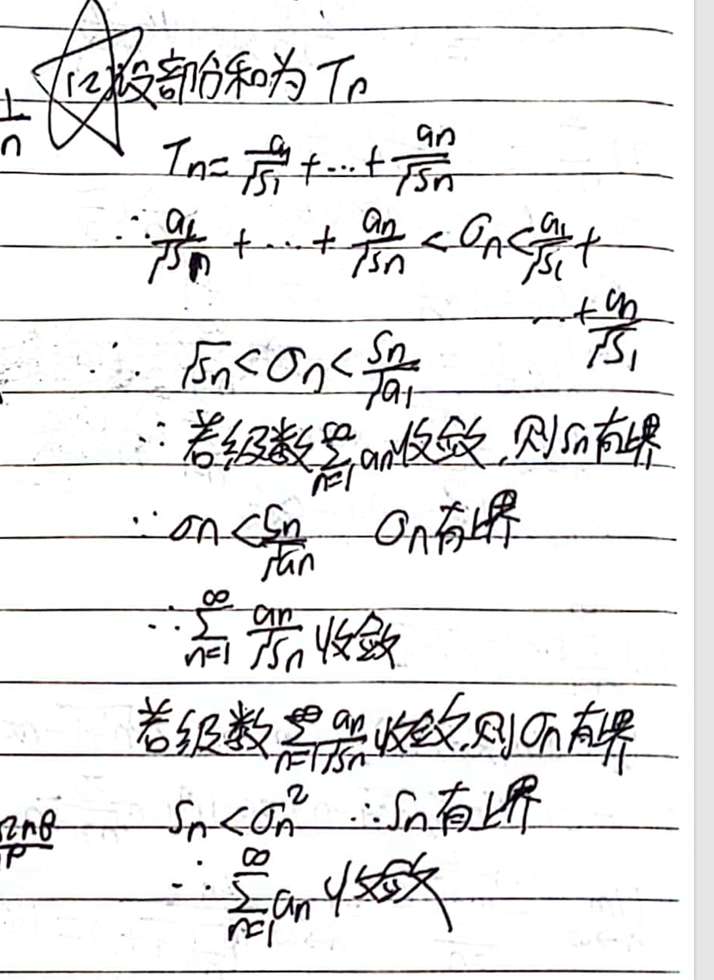 (2)设部份和为Tn
1/n
Tn = a1/√S1 + … + an/√Sn
∴ a1/√Sn + … + an/√Sn < σn < a1/√S1 +
… + an/√S1
∴ √Sn < σn < Sn/√a1
∴ 若级数 ∑_{n=1}^{∞} an 收敛,则Sn有界
∵ σn < Sn/√an σn有上界
∴ ∑_{n=1}^{∞} an/√Sn 收敛
若级数 ∑_{n=1}^{∞} an/√Sn 收敛,则σn有界
Sn < σn² ∴ Sn有上界
∴ ∑_{n=1}^{∞} an 收敛